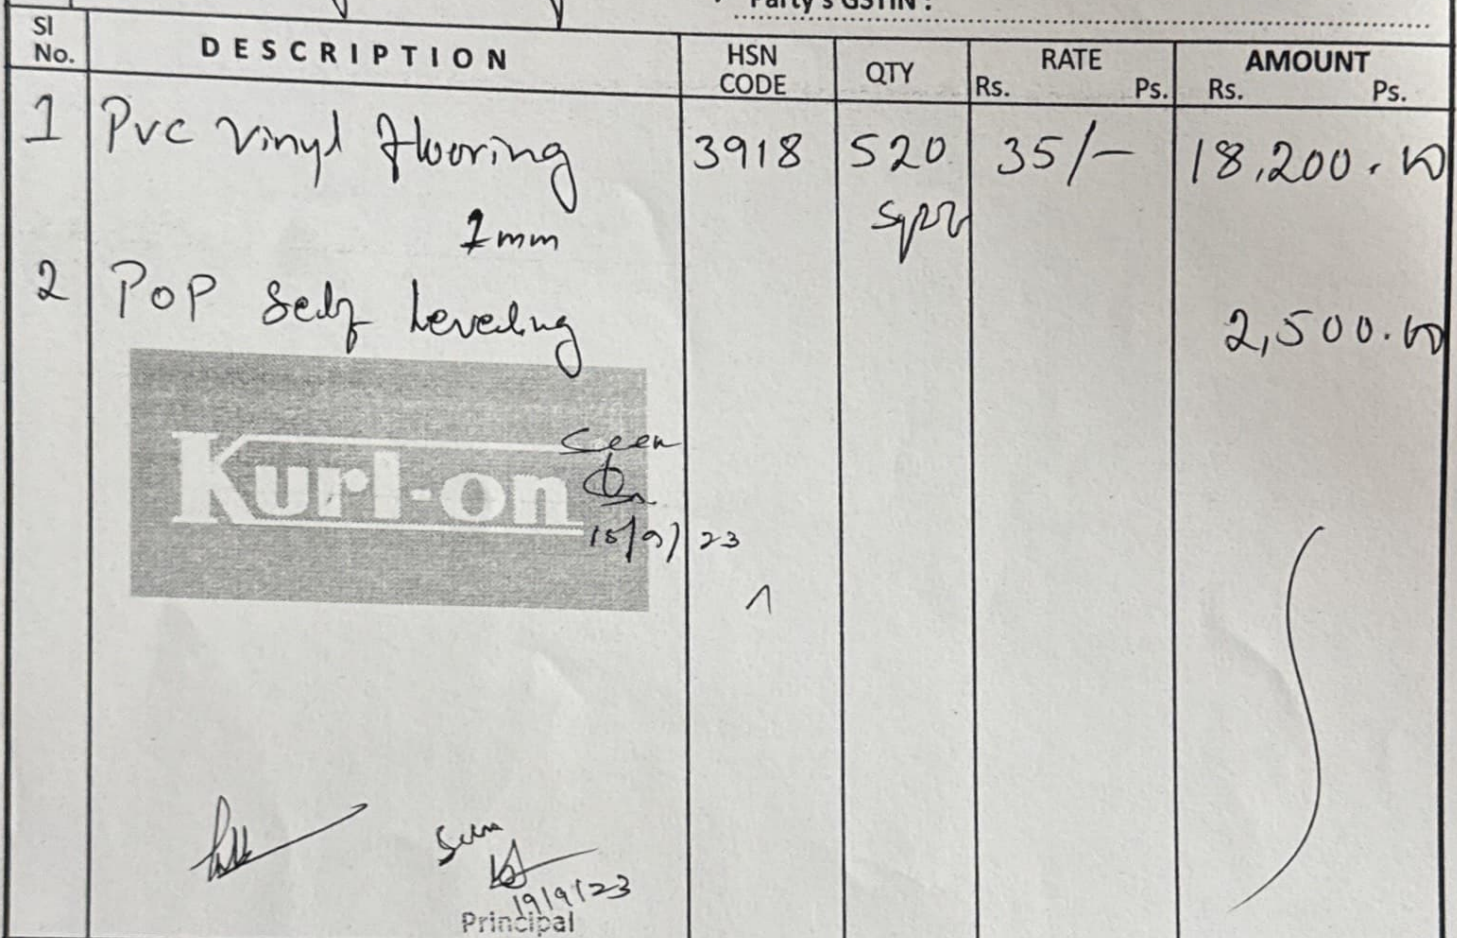 Party's GSTIN :
Sl No. DESCRIPTION HSN CODE QTY RATE Rs. Ps. AMOUNT Rs. Ps.
1 Pvc Vinyl flooring 3918 520 35/- 18,200.00
1mm Sqft
2 POP Self Leveling 2,500.00
Kurl-on
Seen
15/9/23
Seen
19/9/23
Principal